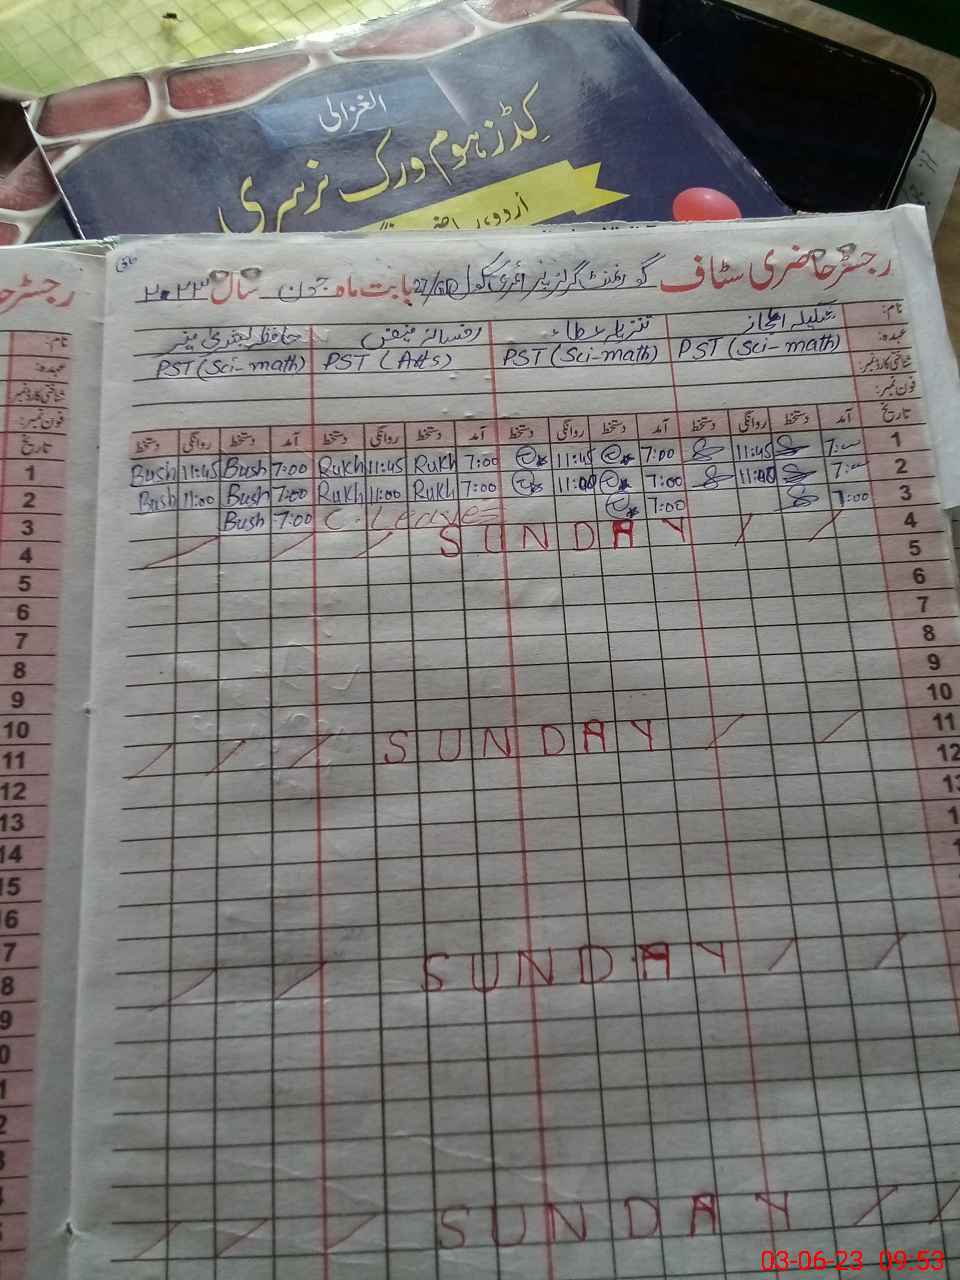 الغزالی
کڈز ہوم ورک نرسری
رجسٹر حاضری سٹاف گورنمنٹ گرلز پرائمری سکول 27/GD بابت ماہ جون سال ۲۰۲۳
نام: شکیلہ اعجاز تنزیلہ عطاء رخسانہ
عہدہ: PST (Sci-math) PST (Sci-math) PST (Arts) PST (Sci-math)
شناختی کارڈ نمبر:
فون نمبر:
تاریخ آمد دستخط روانگی دستخط آمد دستخط روانگی دستخط آمد دستخط روانگی دستخط آمد دستخط روانگی دستخط
1 7:00 11:45 7:00 11:45 7:00 Rukh 11:45 Rukh 7:00 Bush 11:45 Bush
2 7:00 11:00 7:00 11:00 7:00 Rukh 11:00 Rukh 7:00 Bush 11:00 Bush
3 7:00 7:00 C. Leave 7:00 Bush
4 SUNDAY
5
6
7
8
9
10
11 SUNDAY
12
13
14
15
16
SUNDAY
SUNDAY
رجسٹر
نام:
عہدہ:
شناختی کارڈ نمبر
فون نمبر:
تاریخ
1
2
3
4
5
6
7
8
9
10
11
12
13
14
15
16
03-06-23 09:53